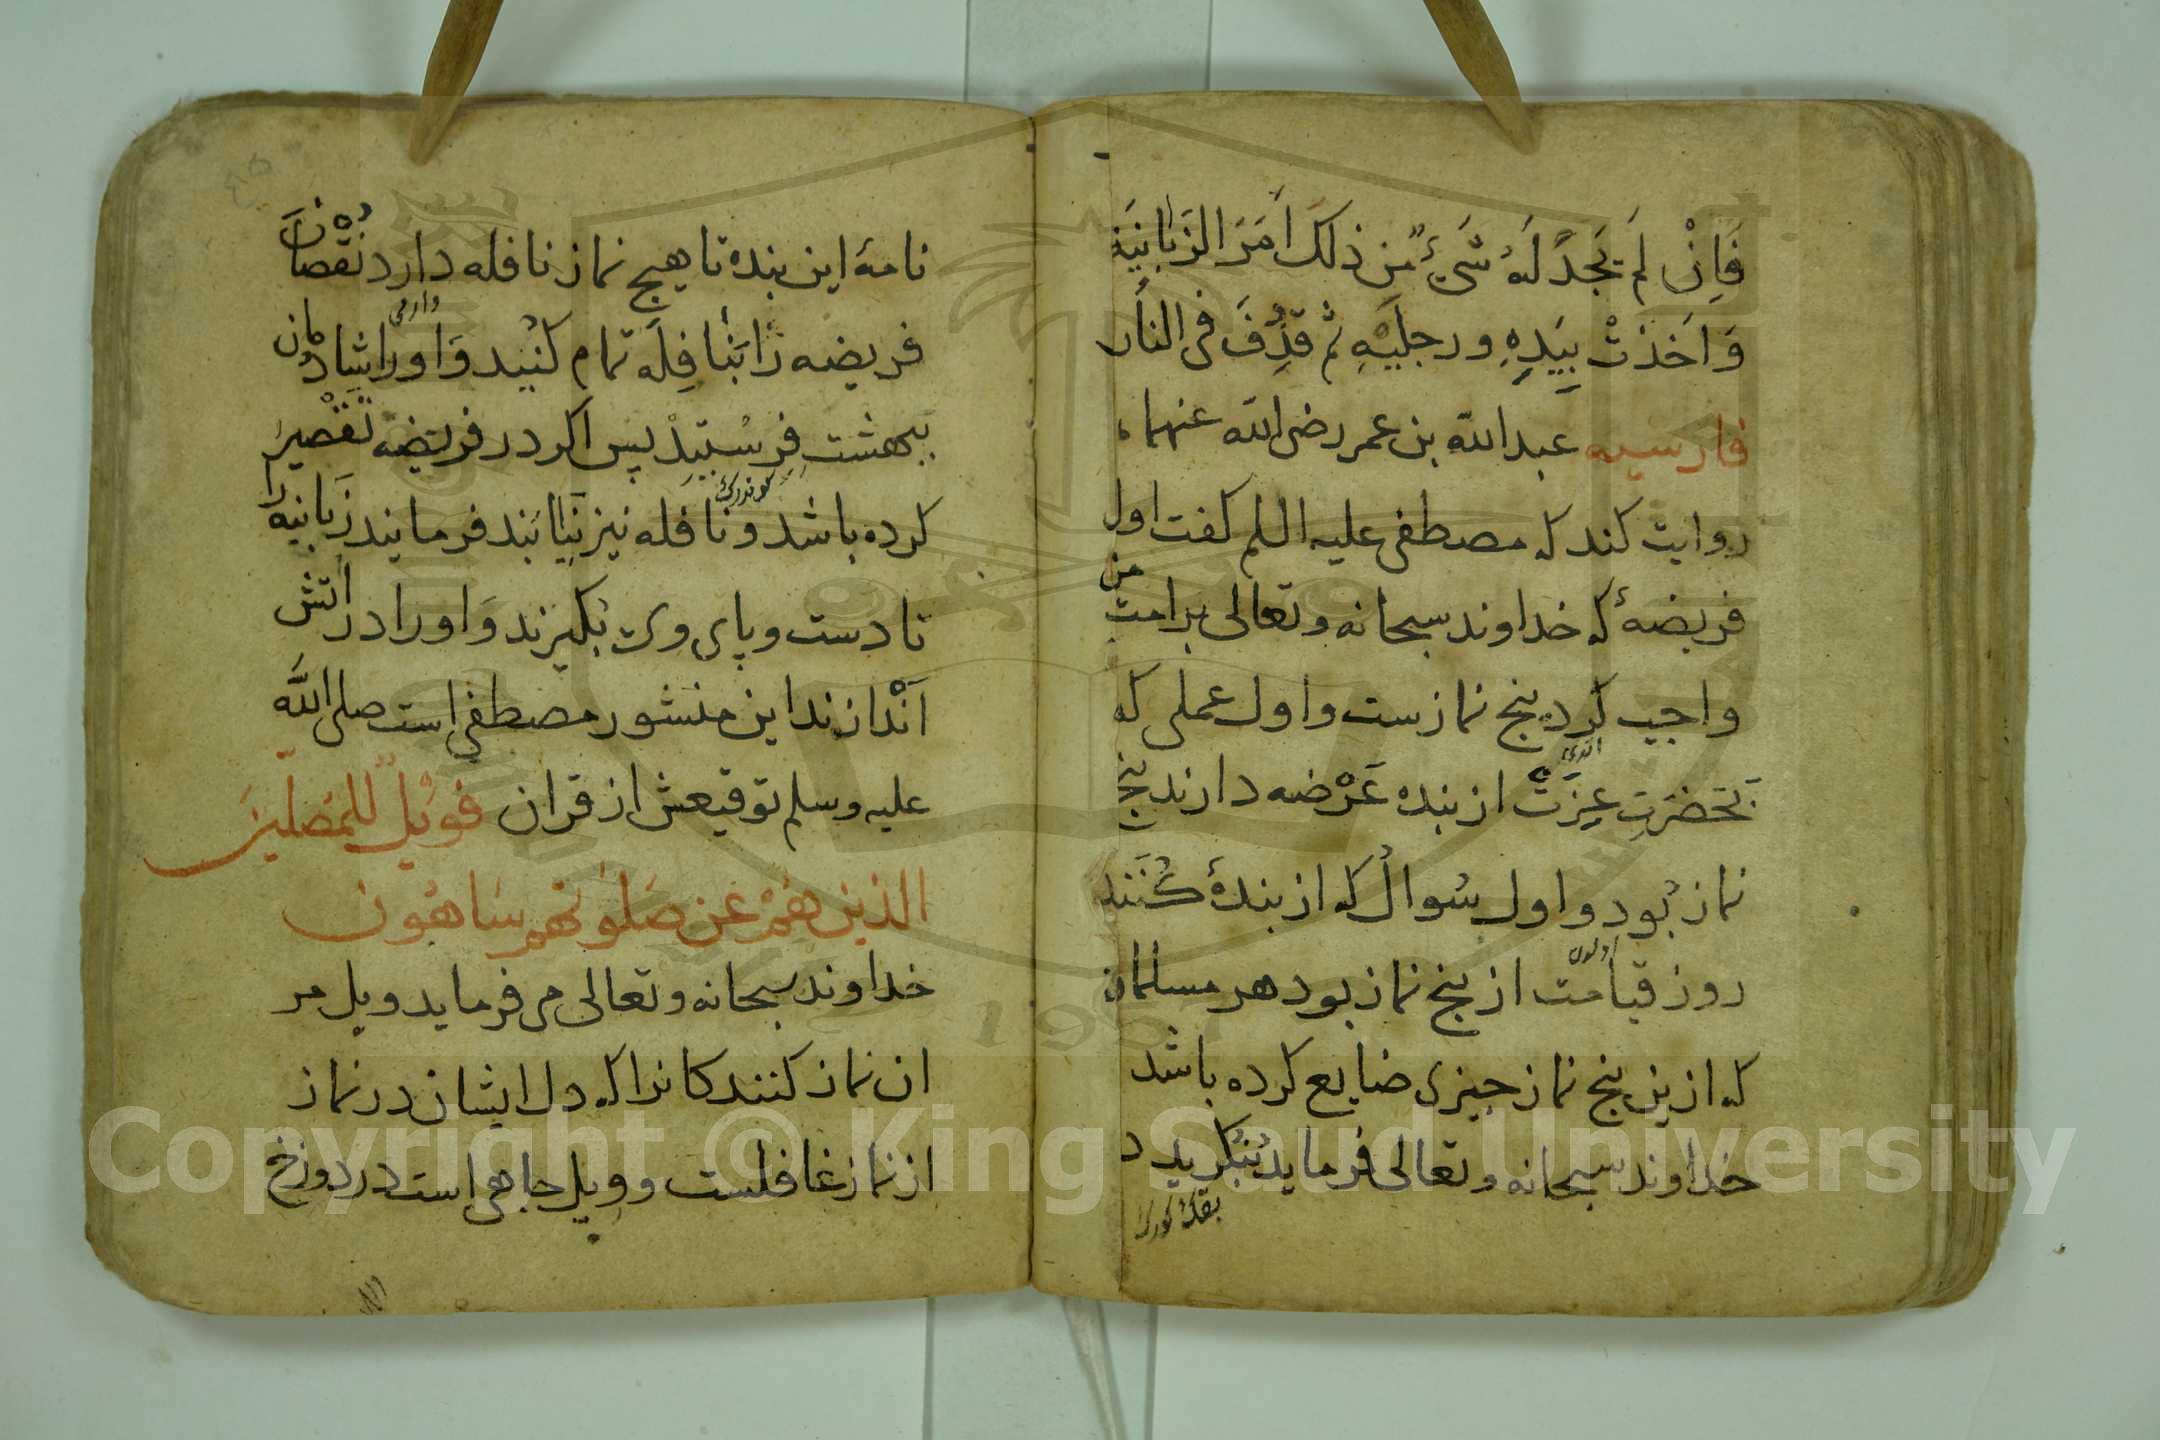 فَاِنْ لَمْ يَجِدْ لَهُ شَيْءٌ مِن ذلكَ اَمَرَ الزَبانِيَة
وَاَخَذَتْ بِيَدِهِ ورجلَيْهِ ثم قُذِفَ فى النار
فارسيه عبدالله بن عمر رضى الله عنهما
روايت كند كه مصطفى عليه السلم كفت اول
فريضهٔ كه خداوند سبحانه وتعالى بر امت من
واجب كرد پنج نمازست واول عملى كه
بَحَضْرَتِ عِزَتْ از بنده عَرْضه دارند پنج
نماز بُود واول سُوال كه از بندهٔ كُنَند
روز قيامت از پنج نماز بود هر مسلمان
كه ازين پنج نماز چيزى ضايع كرده باشد
خداوند سبحانه وتعالى فرمايد بنكريد د
نامهٔ اين بنده تا هيچ نماز نافله دارد نُقْصَانِ
فريضه رَا بَنافِلَه تمام كنُيد وَاورا شادمان
ببهشتِ فِرِسْتيدْ پس اكر در فريضه تَقْصير
كرده باشد ونافله نيز نَيابَند فرمايند زَبانيه را
تا دست وپاى وى بكيرند وَاورا در اتش
اَنْدازند اين منشور مصطفى است صلى الله
عليه وسلم توقيعش از قران فَوَيْلٌ للمُصَلّينَ
الذين هُمْ عَن صَلوتهم سَاهُون
خداوند سبحانه وتعالى مى فرمايد ويل مر
ان نماز كنندكانرا كه دل ايشان در نماز
از نماز غافلست وويل چاهى است در دوزخ
Copyright © King Saud University
1957